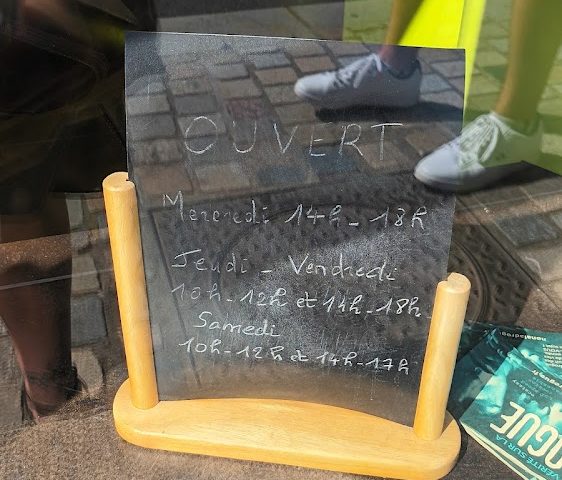 OUVERT
Mercredi 14h - 18h
Jeudi - Vendredi
10h - 12h et 14h - 18h
Samedi
10h - 12h et 14h - 17h
VÉRITÉ SUR LA